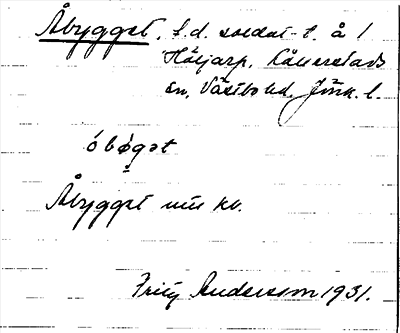 Åbygget, f.d. soldat-t. å 1
Höljarp, Kållerstads
sn, Västbo hd, Jönk. l.
óbøgət
Åbygget utt. kv.
Fritz Andersson 1931.